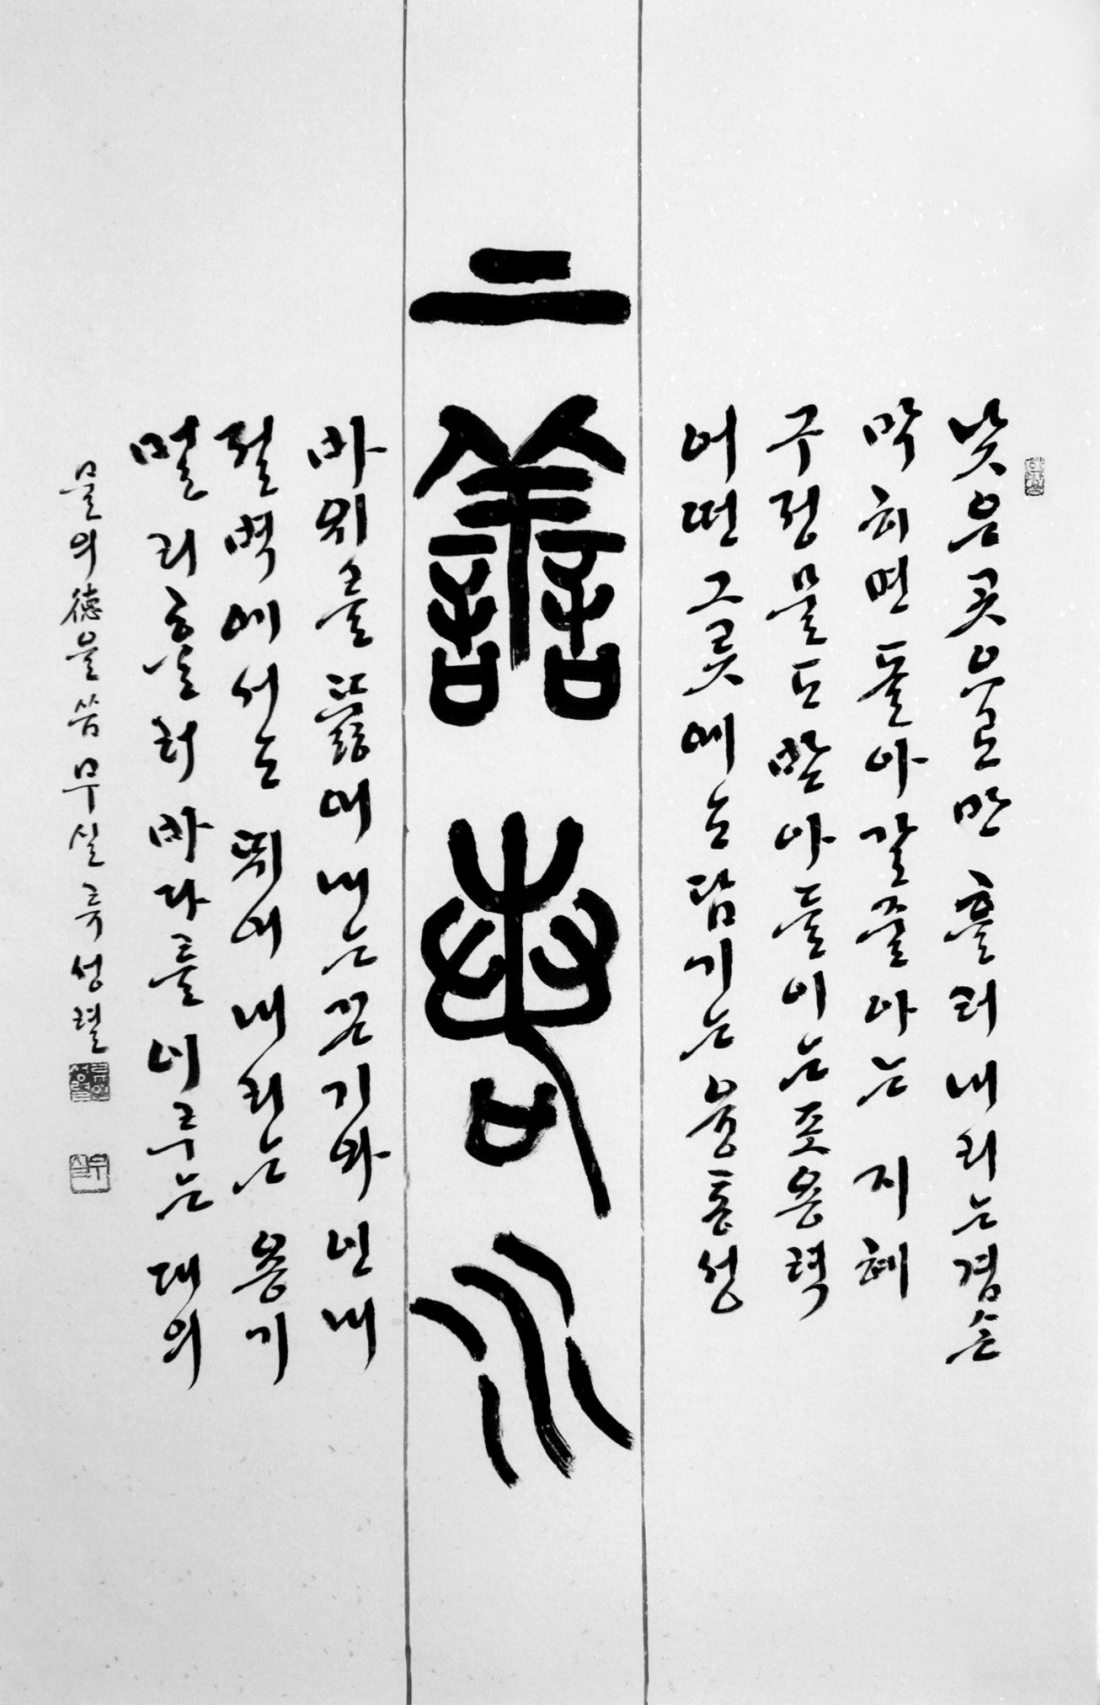 낮은곳으로만 흘러내리는겸손
막히면돌아갈줄아는 지혜
구정물도 받아들이는포용력
어떤 그릇에도 담기는 융통성
上善若水
바위를 뚫어내는끈기와 인내
절벽에서도 뛰어 내리는 용기
멀리흘러 바다를 이루는 대의
물의德을 씀 무실 류성렬